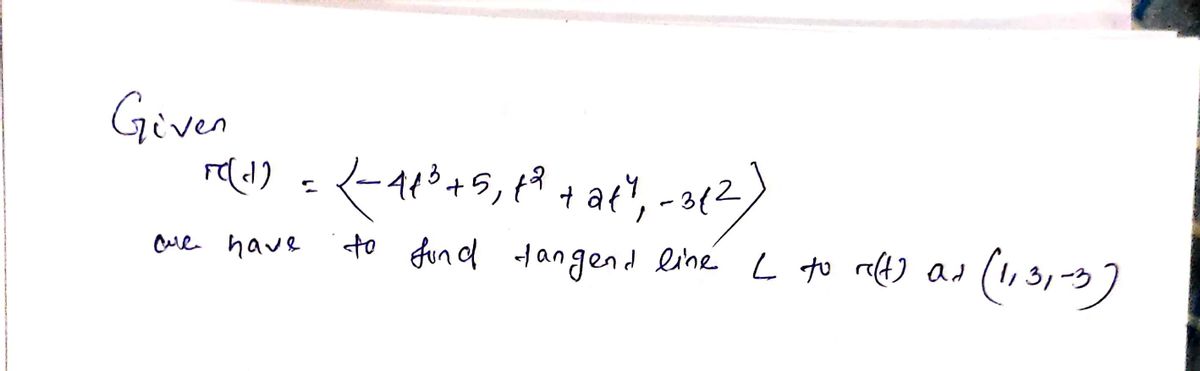 Given
r(t) = ⟨-4t³+5, t²+2t⁴, -3t²⟩
we have to find tangent line L to r(t) at (1,3,-3)